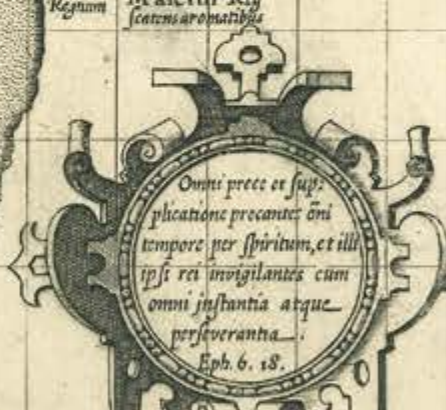 Regnum
scatens aromatibus
Omni prece et sup:
plicatione precantes õni
tempore per spiritum, et illi
ipsi rei invigilantes cum
omni instantia atque
perseverantia.
Eph. 6. 18.